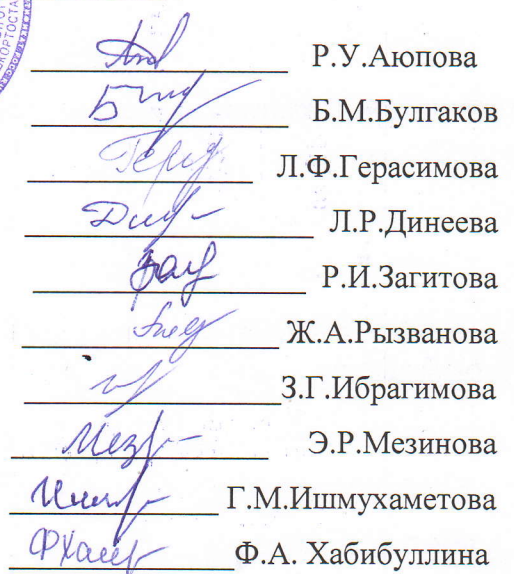 Р.У.Аюпова
Б.М.Булгаков
Л.Ф.Герасимова
Л.Р.Динеева
Р.И.Загитова
Ж.А.Рызванова
З.Г.Ибрагимова
Э.Р.Мезинова
Г.М.Ишмухаметова
Ф.А. Хабибуллина